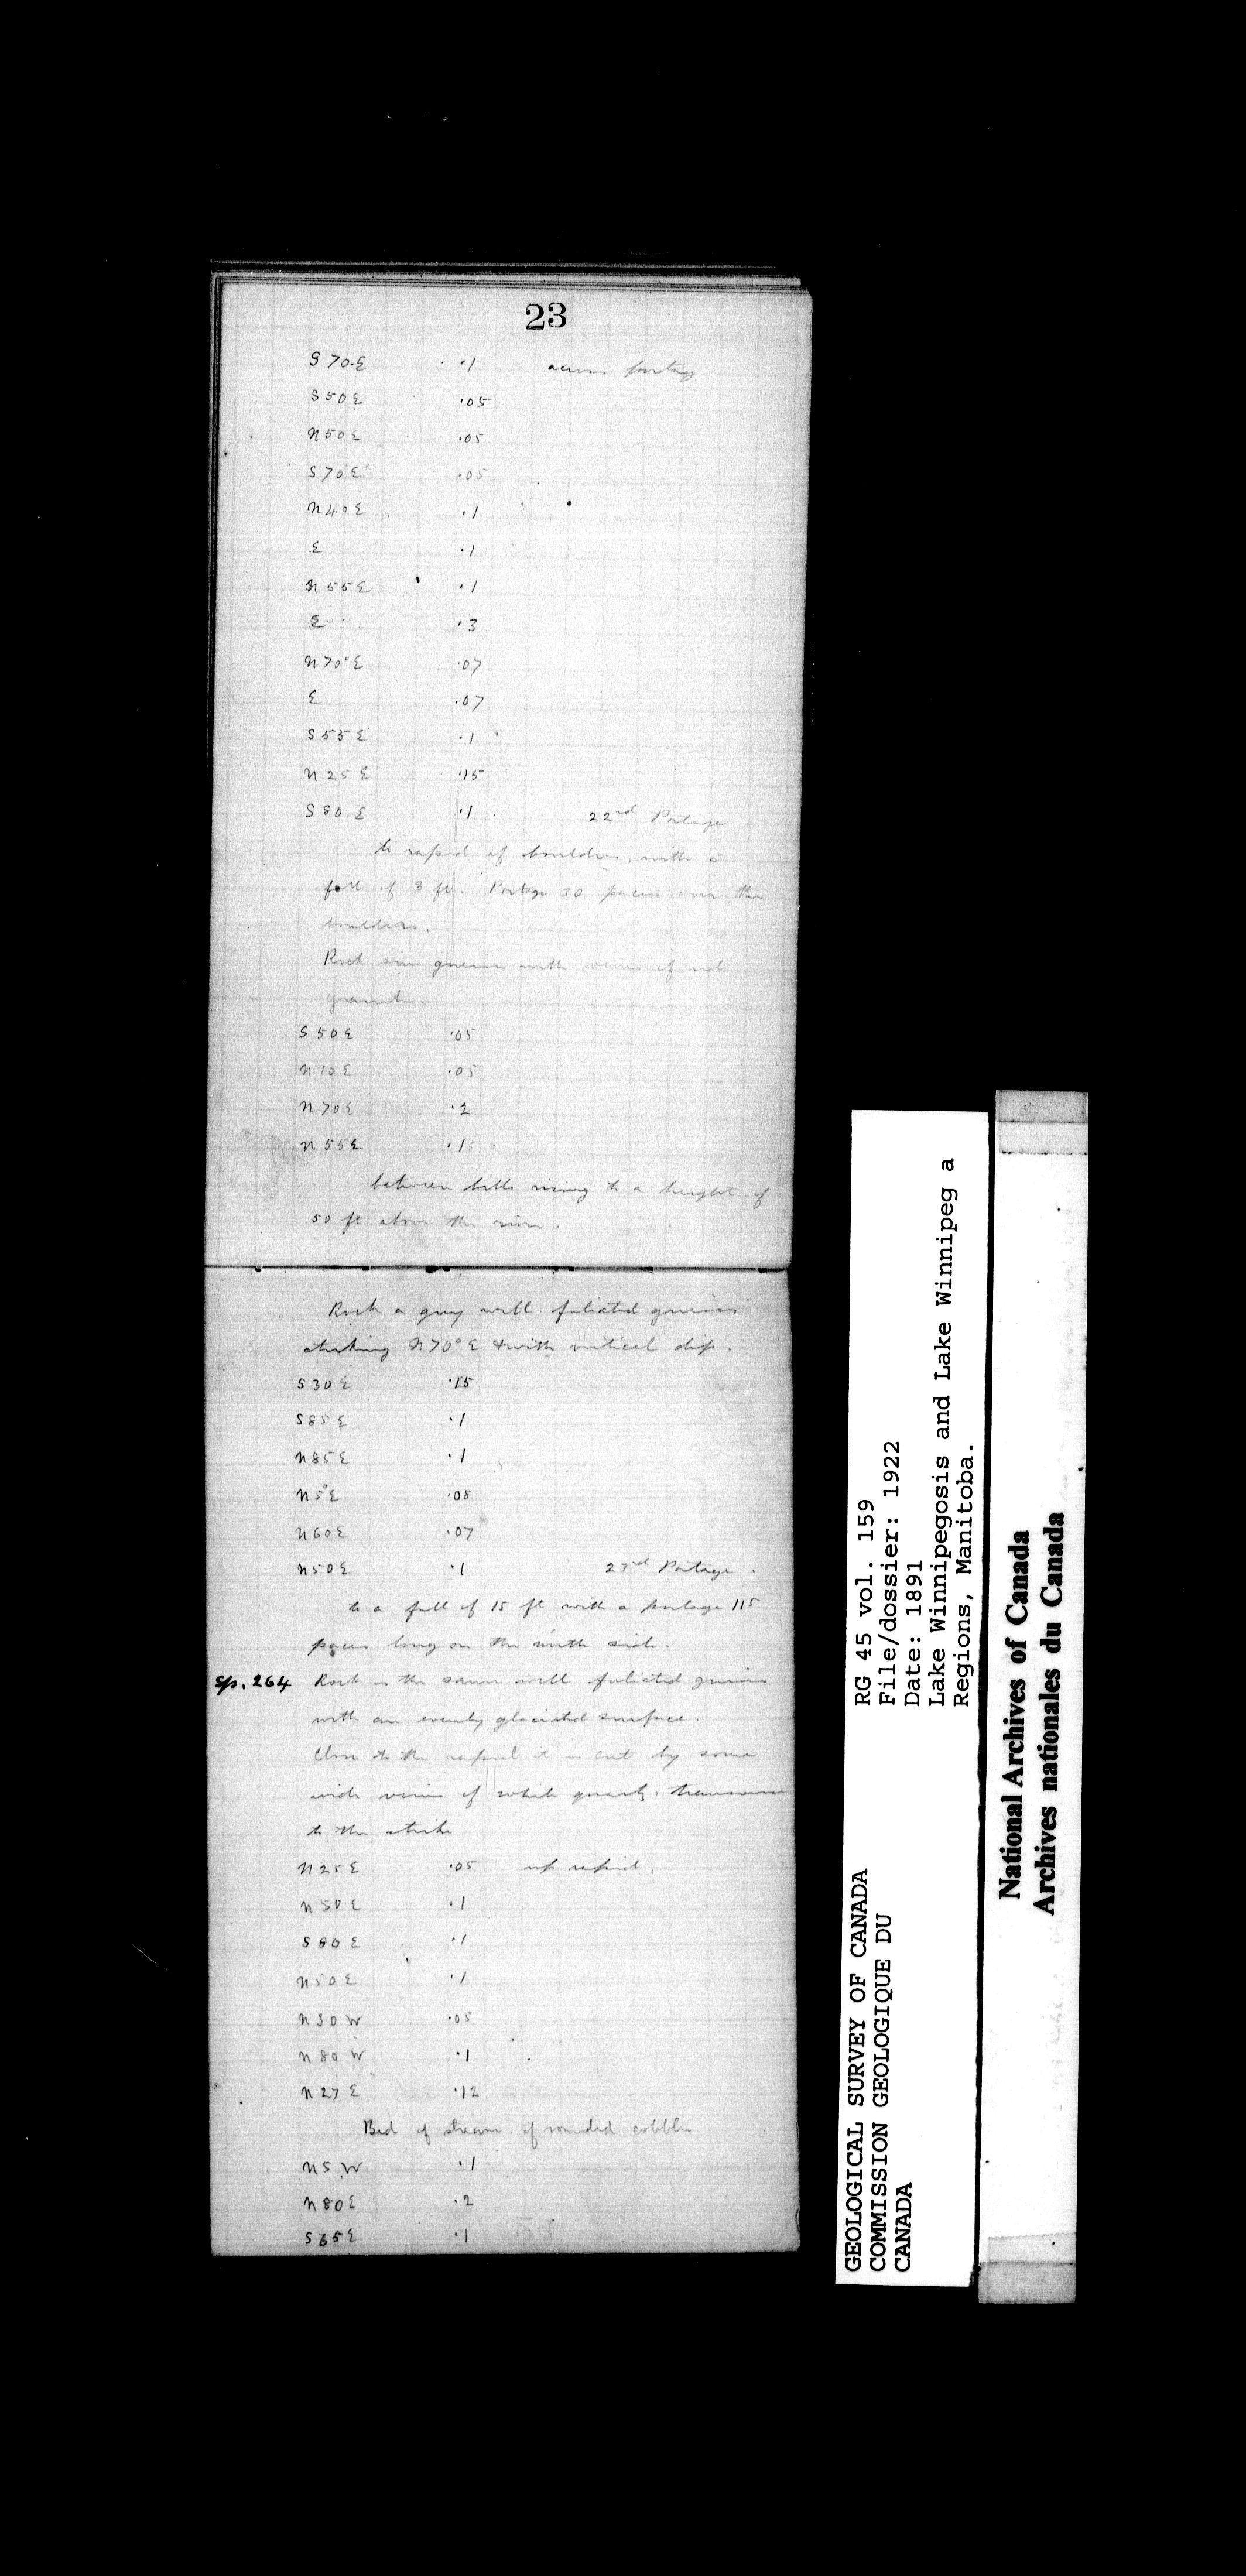 23
S70.E .1 across portage
S50E .05
N50E .05
S70E .05
N40E .1
E .1
N55E .1
E .3
N70°E .07
E .07
S55E .1
N25E .15
S80E .1 22nd Portage
to rapid of boulders, with a
fall of 3 ft. Portage 30 paces over the
boulders.
Rock gneiss with veins of red
granite.
S50E .05
N10E .05
N70E .2
N55E .15
between hills rising to a height of
50 ft above the river.
Rock a grey well foliated gneiss
striking N70°E & with vertical dip.
S30E .15
S85E .1
N85E .1
N5°E .08
N60E .07
N50E .1 23rd Portage.
to a fall of 15 ft with a portage 115
paces long on the north side.
Sp. 264 Rock is the same well foliated gneiss
with an evenly glaciated surface.
Close to the rapid it is cut by some
wide veins of white quartz transverse
to the strike
N25E .05 up rapid.
N30E .1
S80E .1
N50E .1
N30W .05
N80W .1
N27E .12
Bed of stream of rounded cobbles
N5W .1
N80E .2
S65E .1
GEOLOGICAL SURVEY OF CANADA
COMMISSION GEOLOGIQUE DU
CANADA
RG 45 vol. 159
File/dossier: 1922
Date: 1891
Lake Winnipegosis and Lake Winnipeg a
Regions, Manitoba.
National Archives of Canada
Archives nationales du Canada